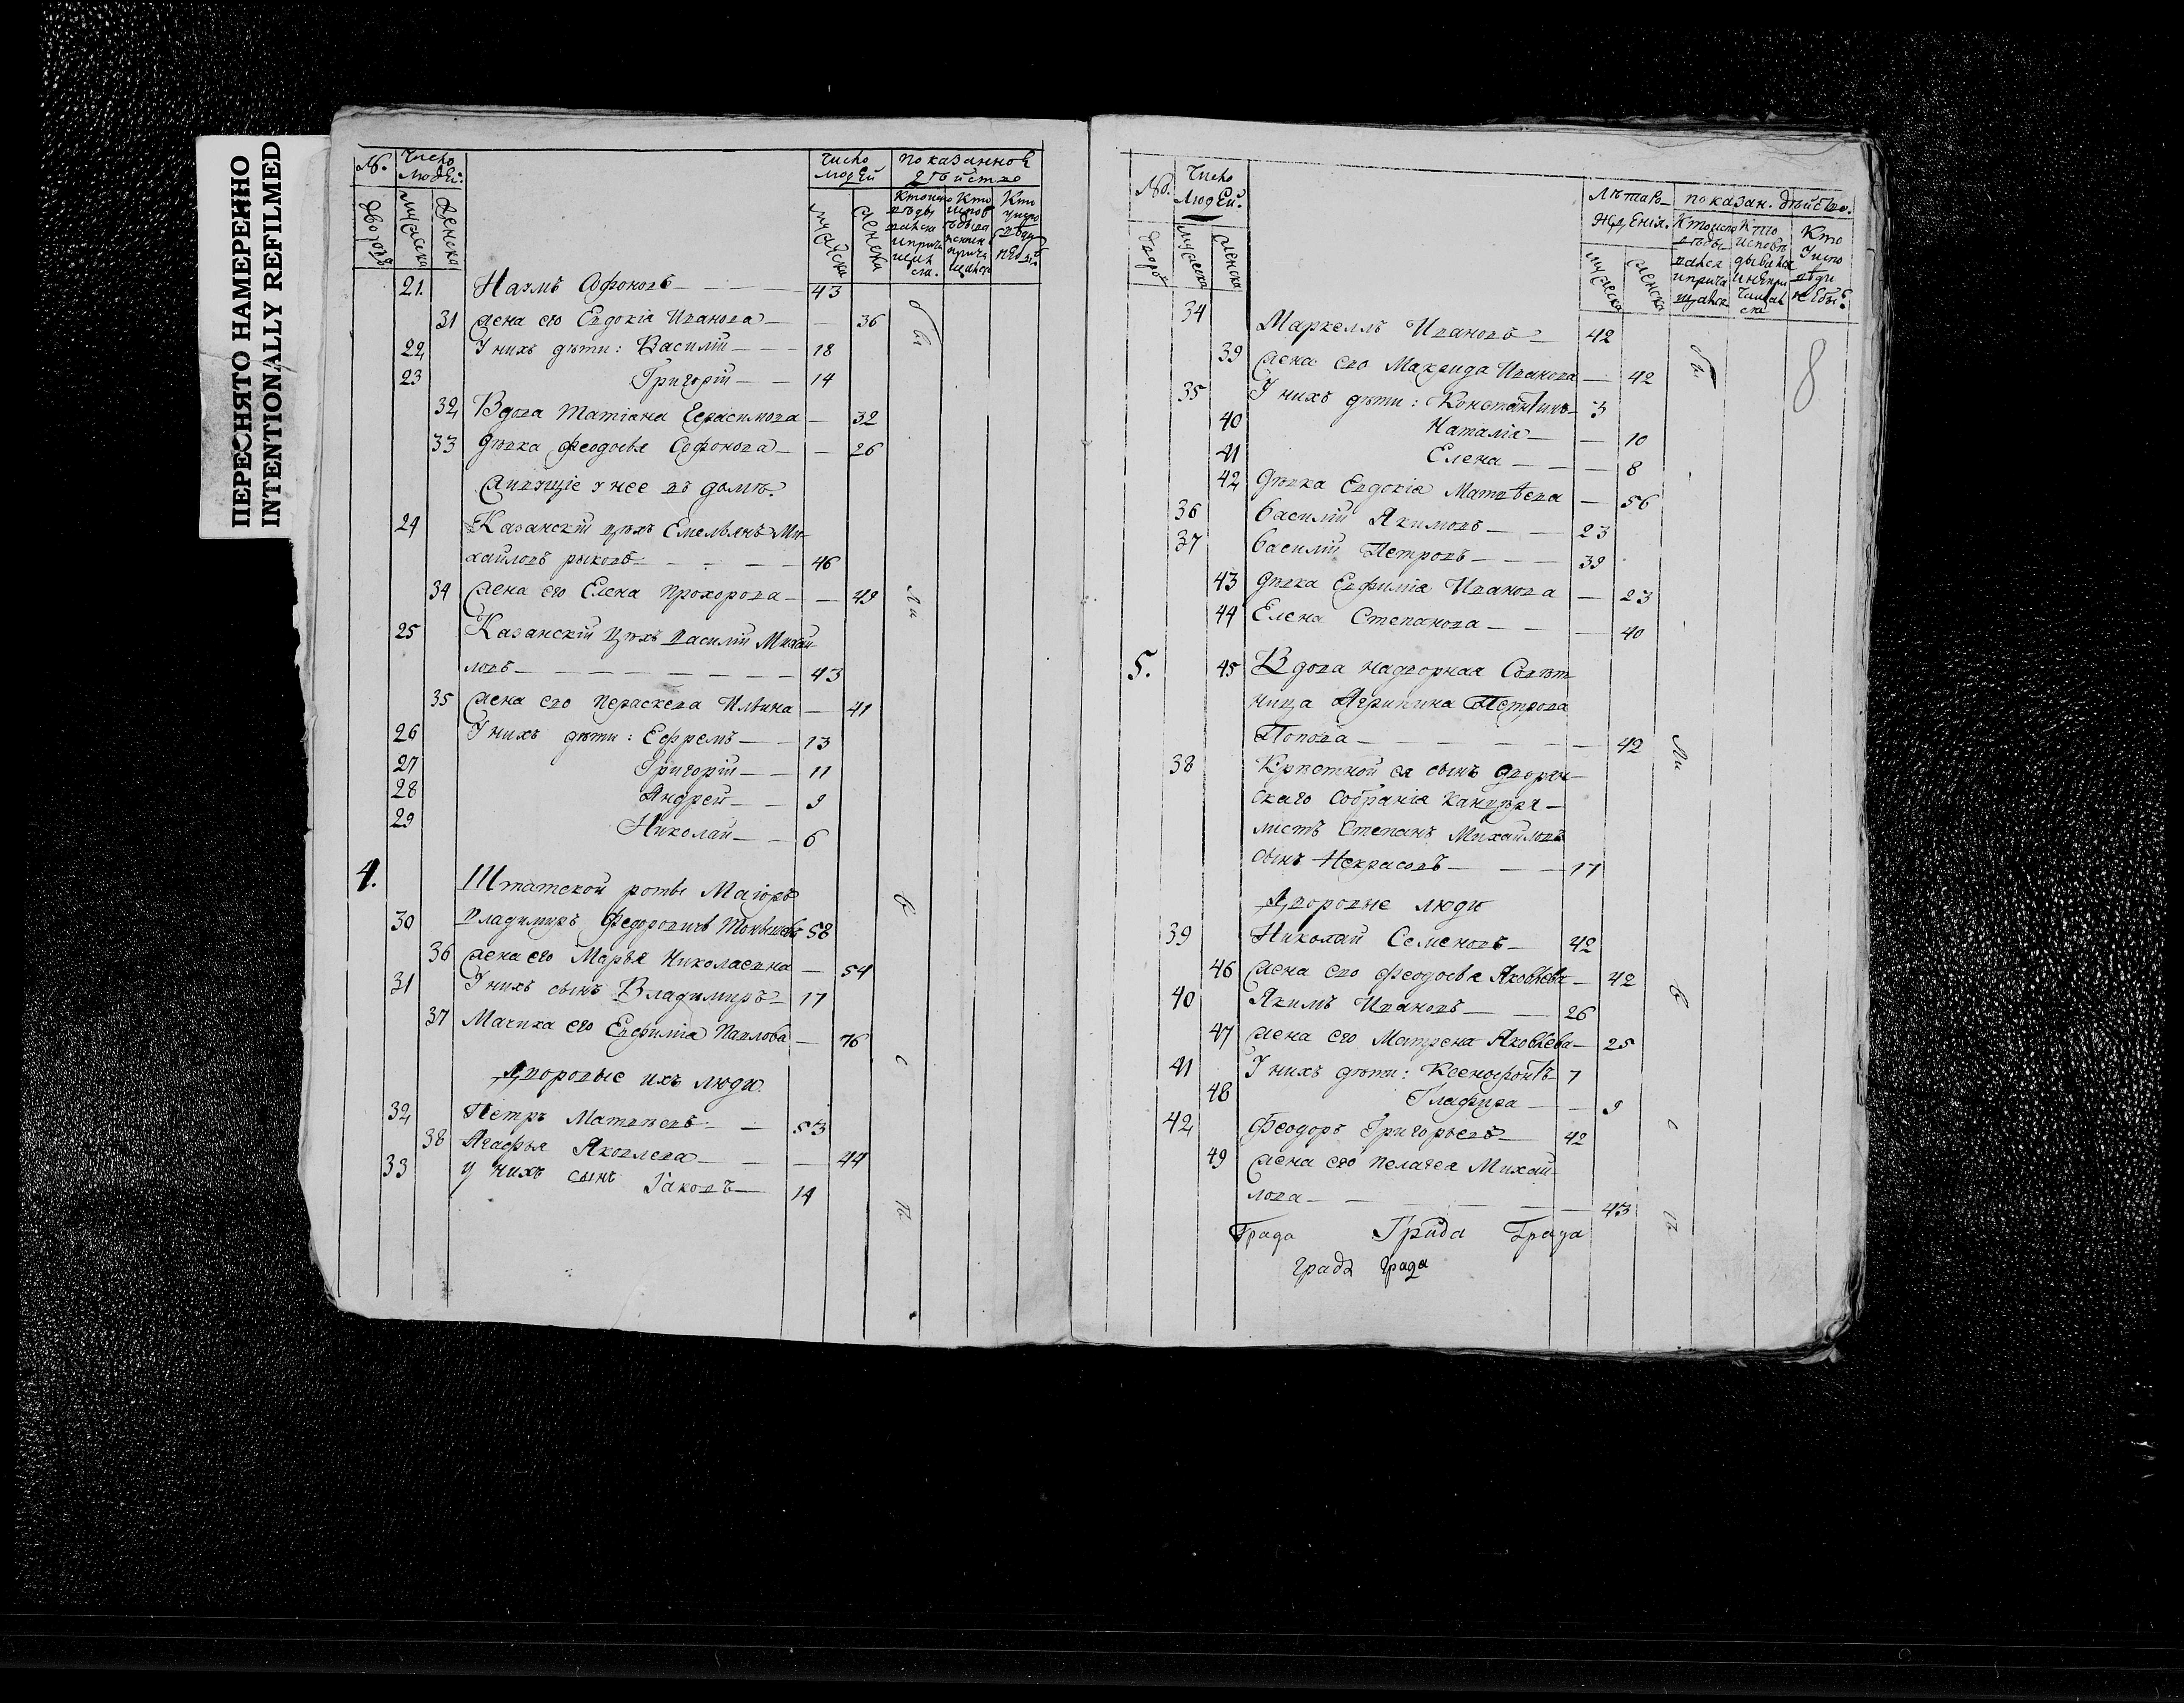 ПЕРЕСНЯТО НАМЕРЕННО
INTENTIONALLY REFILMED
№. Число людей: Число людей показанное дѣйство
дворовъ мужеска женска мужеска женска
21. Наумъ Софоновъ 43
31 жена его Евдокіа Иванова 36
22 У нихъ дѣти: Василій 18
23 Григорій 14
32 Вдова Матіана Герасимова 32
33 дѣвка Феодосья Софонова 26
Живущіе у нее въ домѣ:
24 Казанскій цѣхъ Емельянъ Ми-
хайловъ рыковъ 46
34 жена его Елена Прохорова 49
25 Казанскій цѣхъ Василій Михай-
ловъ 43
35 жена его Параскева Ильина 41
26 У нихъ дѣти: Ефремъ 13
27 Григорій 11
28 Андрей 9
29 Николай 6
4. Штатской роты Маіоръ
30 Владимиръ Федоровичъ 58
36 жена его Марья Николаевна 54
31 У нихъ сынъ Владимиръ 17
37 Мачиха его Евфиміа Павлова 76
Дворовые ихъ люди
32 Петръ Матвѣевъ 53
38 Агафья Яковлева 44
33 У нихъ сынъ Іаковъ 14
№. Число Людей. Лѣта рождения. показан. дѣйство.
дворовъ мужеска женска мужеска женска
8
34 Маркеллъ Ивановъ 42
39 жена его Макрида Иванова 42
35 У нихъ дѣти: Константинъ 3
40 Наталіа 10
41 Елена 8
42 дѣвка Евдокіа Матвѣева 56
36 Василій Якимовъ 23
37 Василій Петровъ 39
43 дѣвка Евфиміа Иванова 23
44 Елена Степанова 40
5. 45 Вдова надворная Совѣт-
ница Агрипина Петрова
Попова 42
38 Крѣстной ея сынъ дворян-
скаго Собранія канцеля-
листъ Степанъ Михайловъ
сынъ Некрасовъ 17
Дворовые люди
39 Николай Семеновъ 42
46 жена его Феодосья Яковлева 42
40 Якимъ Ивановъ 26
47 жена его Матрена Яковлева 25
41 У нихъ дѣти: Ксенофонтъ 7
48 Глафира 9
42 Феодоръ Григорьевъ 42
49 жена его Пелагея Михай-
лова 43
Града Града Града
града града